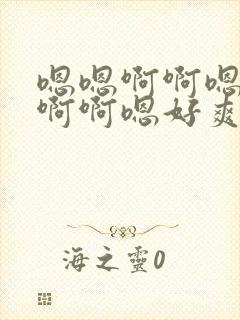 嗯嗯啊啊嗯
啊啊嗯好爽
海之靈0